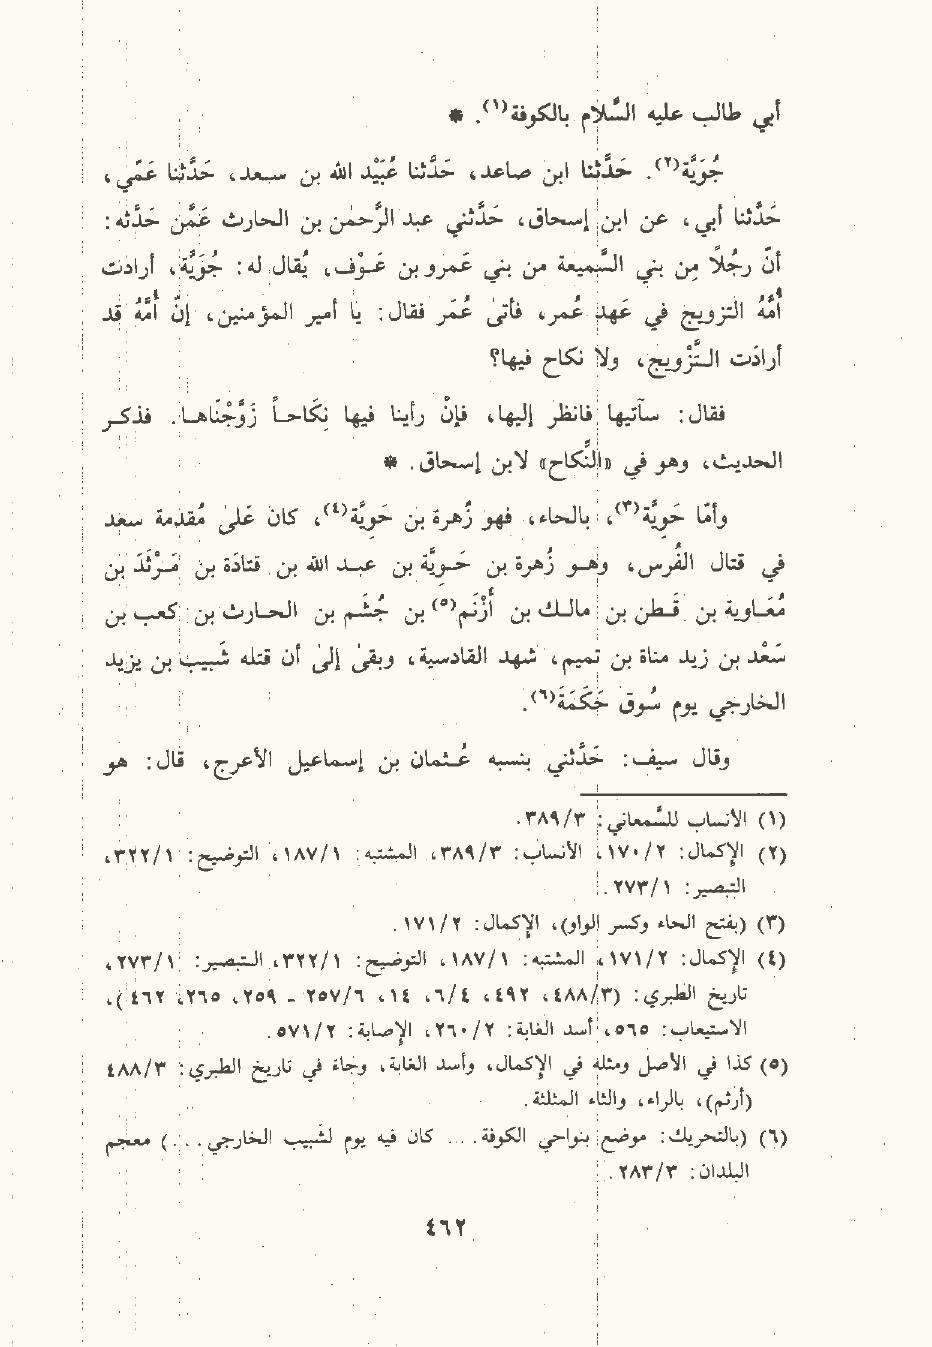 أبي طالب عليه السَّلام بالكوفة(١). *
جُوَيَّة(٢). حَدَّثنا ابن صاعد، حَدَّثنا عُبَيْد الله بن سـعد، حَدَّثنا عَمّي،
حَدَّثنا أبي، عن ابن إسحاق، حَدَّثني عبد الرَّحمٰن بن الحارث عَمَّن حَدَّثه:
أنّ رجُلاً مِن بني السَّميعة من بني عَمرو بن عَوْف، يُقال له: جُوَيَّة، أرادت
أُمَّهُ التزويج في عَهد عُمر، فأتىٰ عُمَر فقال: يا أمير المؤمنين، إنّ أُمَّهُ قد
أرادَت الـتَّزْويج، ولا نكاح فيها؟
فقال: سآتيها فانظر إليها، فإنْ رأينا فيها نِكَاحـاً زَوَّجْنَاهـا. فذكـر
الحديث، وهو في «النِّكاح» لابن إسحاق. *
وأمّا حَوِيَّة(٣)، بالحاء، فهو زُهرة بن حَوِيَّة(٤)، كان عَلىٰ مُقدمة سعد
في قتال الفُرس، وهـو زُهرة بن حَـوِيَّة بن عبـد الله بن قتادَة بن مَـرْثَد بن
مُعَـاوية بن قَـطن بن مالـك بن أَزْنَـم(٥) بن جُشَـم بن الحـارث بن كعب بن
سَعْد بن زيد مناة بن تميم، شهد القادسية، وبقىٰ إلىٰ أن قتله شَبيب بن يزيد
الخارجي يوم سُوق حَكَمَة(٦).
وقال سيف: حَدَّثني بنسبه عُـثمان بن إسماعيل الأعرج، قال: هو
(١) الأنساب للسَّمعاني: ٣/٣٨٩.
(٢) الإكمال: ٢/١٧٠، الأنساب: ٣/٣٨٩، المشتبه: ١/١٨٧، التوضيح: ١/٣٢٢،
التبصير: ١/٢٧٣.
(٣) (بفتح الحاء وكسر الواو)، الإكمال: ٢/١٧١.
(٤) الإكمال: ٢/١٧١، المشتبه: ١/١٨٧، التوضيح: ١/٣٢٢، الـتبصير: ١/٢٧٣،
تاريخ الطبري: (٣/٤٨٨، ٤٩٢، ٤/٦، ١٤، ٦/٢٥٧ - ٢٥٩، ٢٦٥، ٤٦٢)،
الاستيعاب: ٥٦٥، أسد الغابة: ٢/٢٦٠، الإصابة: ٢/٥٧١.
(٥) كذا في الأصل ومثله في الإكمال، وأسد الغابة، وجاء في تاريخ الطبري: ٣/٤٨٨
(أرثم)، بالراء، والثاء المثلثة.
(٦) (بالتحريك: موضع بنواحي الكوفة. ... كان فيه يوم لشَبيب الخارجي...) معجم
البلدان: ٣/٢٨٣.
٤٦٢